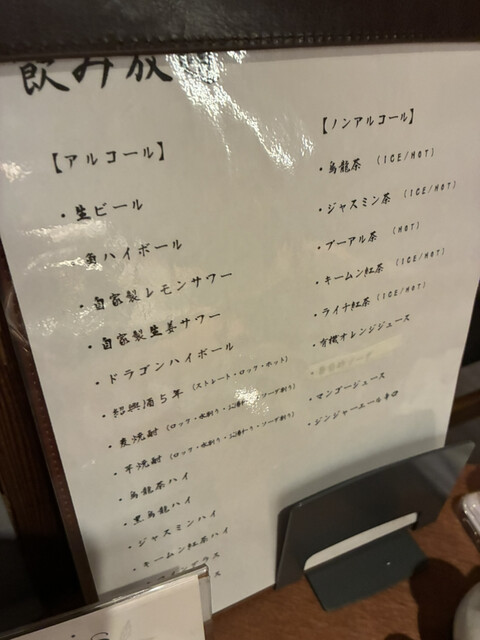 飲み放
【アルコール】
・生ビール
角ハイボール
・自家製レモンサワー
・自家製生姜サワー
・ドラゴンハイボール
・紹興酒5年 (ストレート・ロック・ホット)
・麦焼酎 (ロック・水割り・お湯わり・ソーダ割り)
・芋焼酎 (ロック・水割り・お湯わり・ソーダ割り)
・烏龍茶ハイ
・黒烏龍ハイ
・ジャスミンハイ
・キームン紅茶ハイ
【ノンアルコール】
・烏龍茶 (ICE/HOT)
・ジャスミン茶 (ICE/HOT)
・プーアル茶 (HOT)
・キームン紅茶 (ICE/HOT)
・ライチ紅茶 (ICE/HOT)
・有機オレンジジュース
・マンゴージュース
・ジンジャーエール辛口